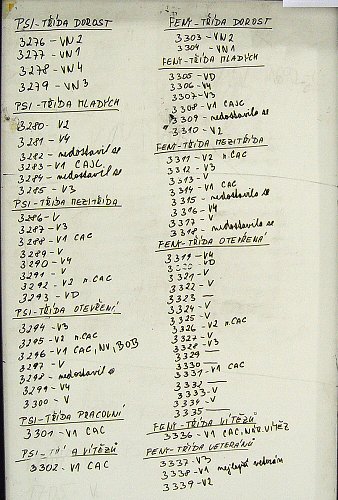 PSI-TŘÍDA DOROST
3276 - VN2
3277 - VN1
3278 - VN4
3279 - VN3
PSI-TŘÍDA MLADÝCH
3280 - V2
3281 - V4
3282 - nedostavil se
3283 - V1 CAJC
3284 - nedostavil se
3285 - V3
PSI-TŘÍDA MEZITŘÍDA
3286 - V
3287 - V3
3288 - V1 CAC
3289 - V
3290 - V4
3291 - V
3292 - V2 r.CAC
3293 - VD
PSI-TŘÍDA OTEVŘENÍ
3294 - V3
3295 - V2 r.CAC
3296 - V1 CAC, NV, BOB
3297 - V
nedostavil
3299 - V4
3300 - V
PSI-TŘÍDA PRACOVNÍ
3301 - V1 CAC
PSI-VÍTĚZŮ
3302 - V1 CAC
FENY-TŘÍDA DOROST
3303 - VN2
3304 - VN1
FENY-TŘÍDA MLADÝCH
3305 - VD
3306 - V4
3307 - V3
3308 - V1 CAJC
3309 - nedostavila se
3310 - V2
FENY-TŘÍDA MEZITŘÍDA
3311 - V2 r.CAC
3312 - V3
3313 - V
3314 - V1 CAC
3315 - nedostavila se
3316 - V4
3317 - V
3318 - nedostavila se
FENY-TŘÍDA OTEVŘENÁ
3319 - V4
VD
3321 - V
3322 - V
3323
3324 - V
3325 - V
3326 - V2 r.CAC
3327 - V
3328 - V3
3329
3330
3331 - V1 CAC
3332
3333 - V
3334 - V
3335
FENY-TŘÍDA VÍTĚZŮ
3336 - V1 CAC, NÁR.VÍTĚZ
FENY-TŘÍDA VETERÁNŮ
3337 - V3
3338 - V1 nejlepší veterán
3339 - V2